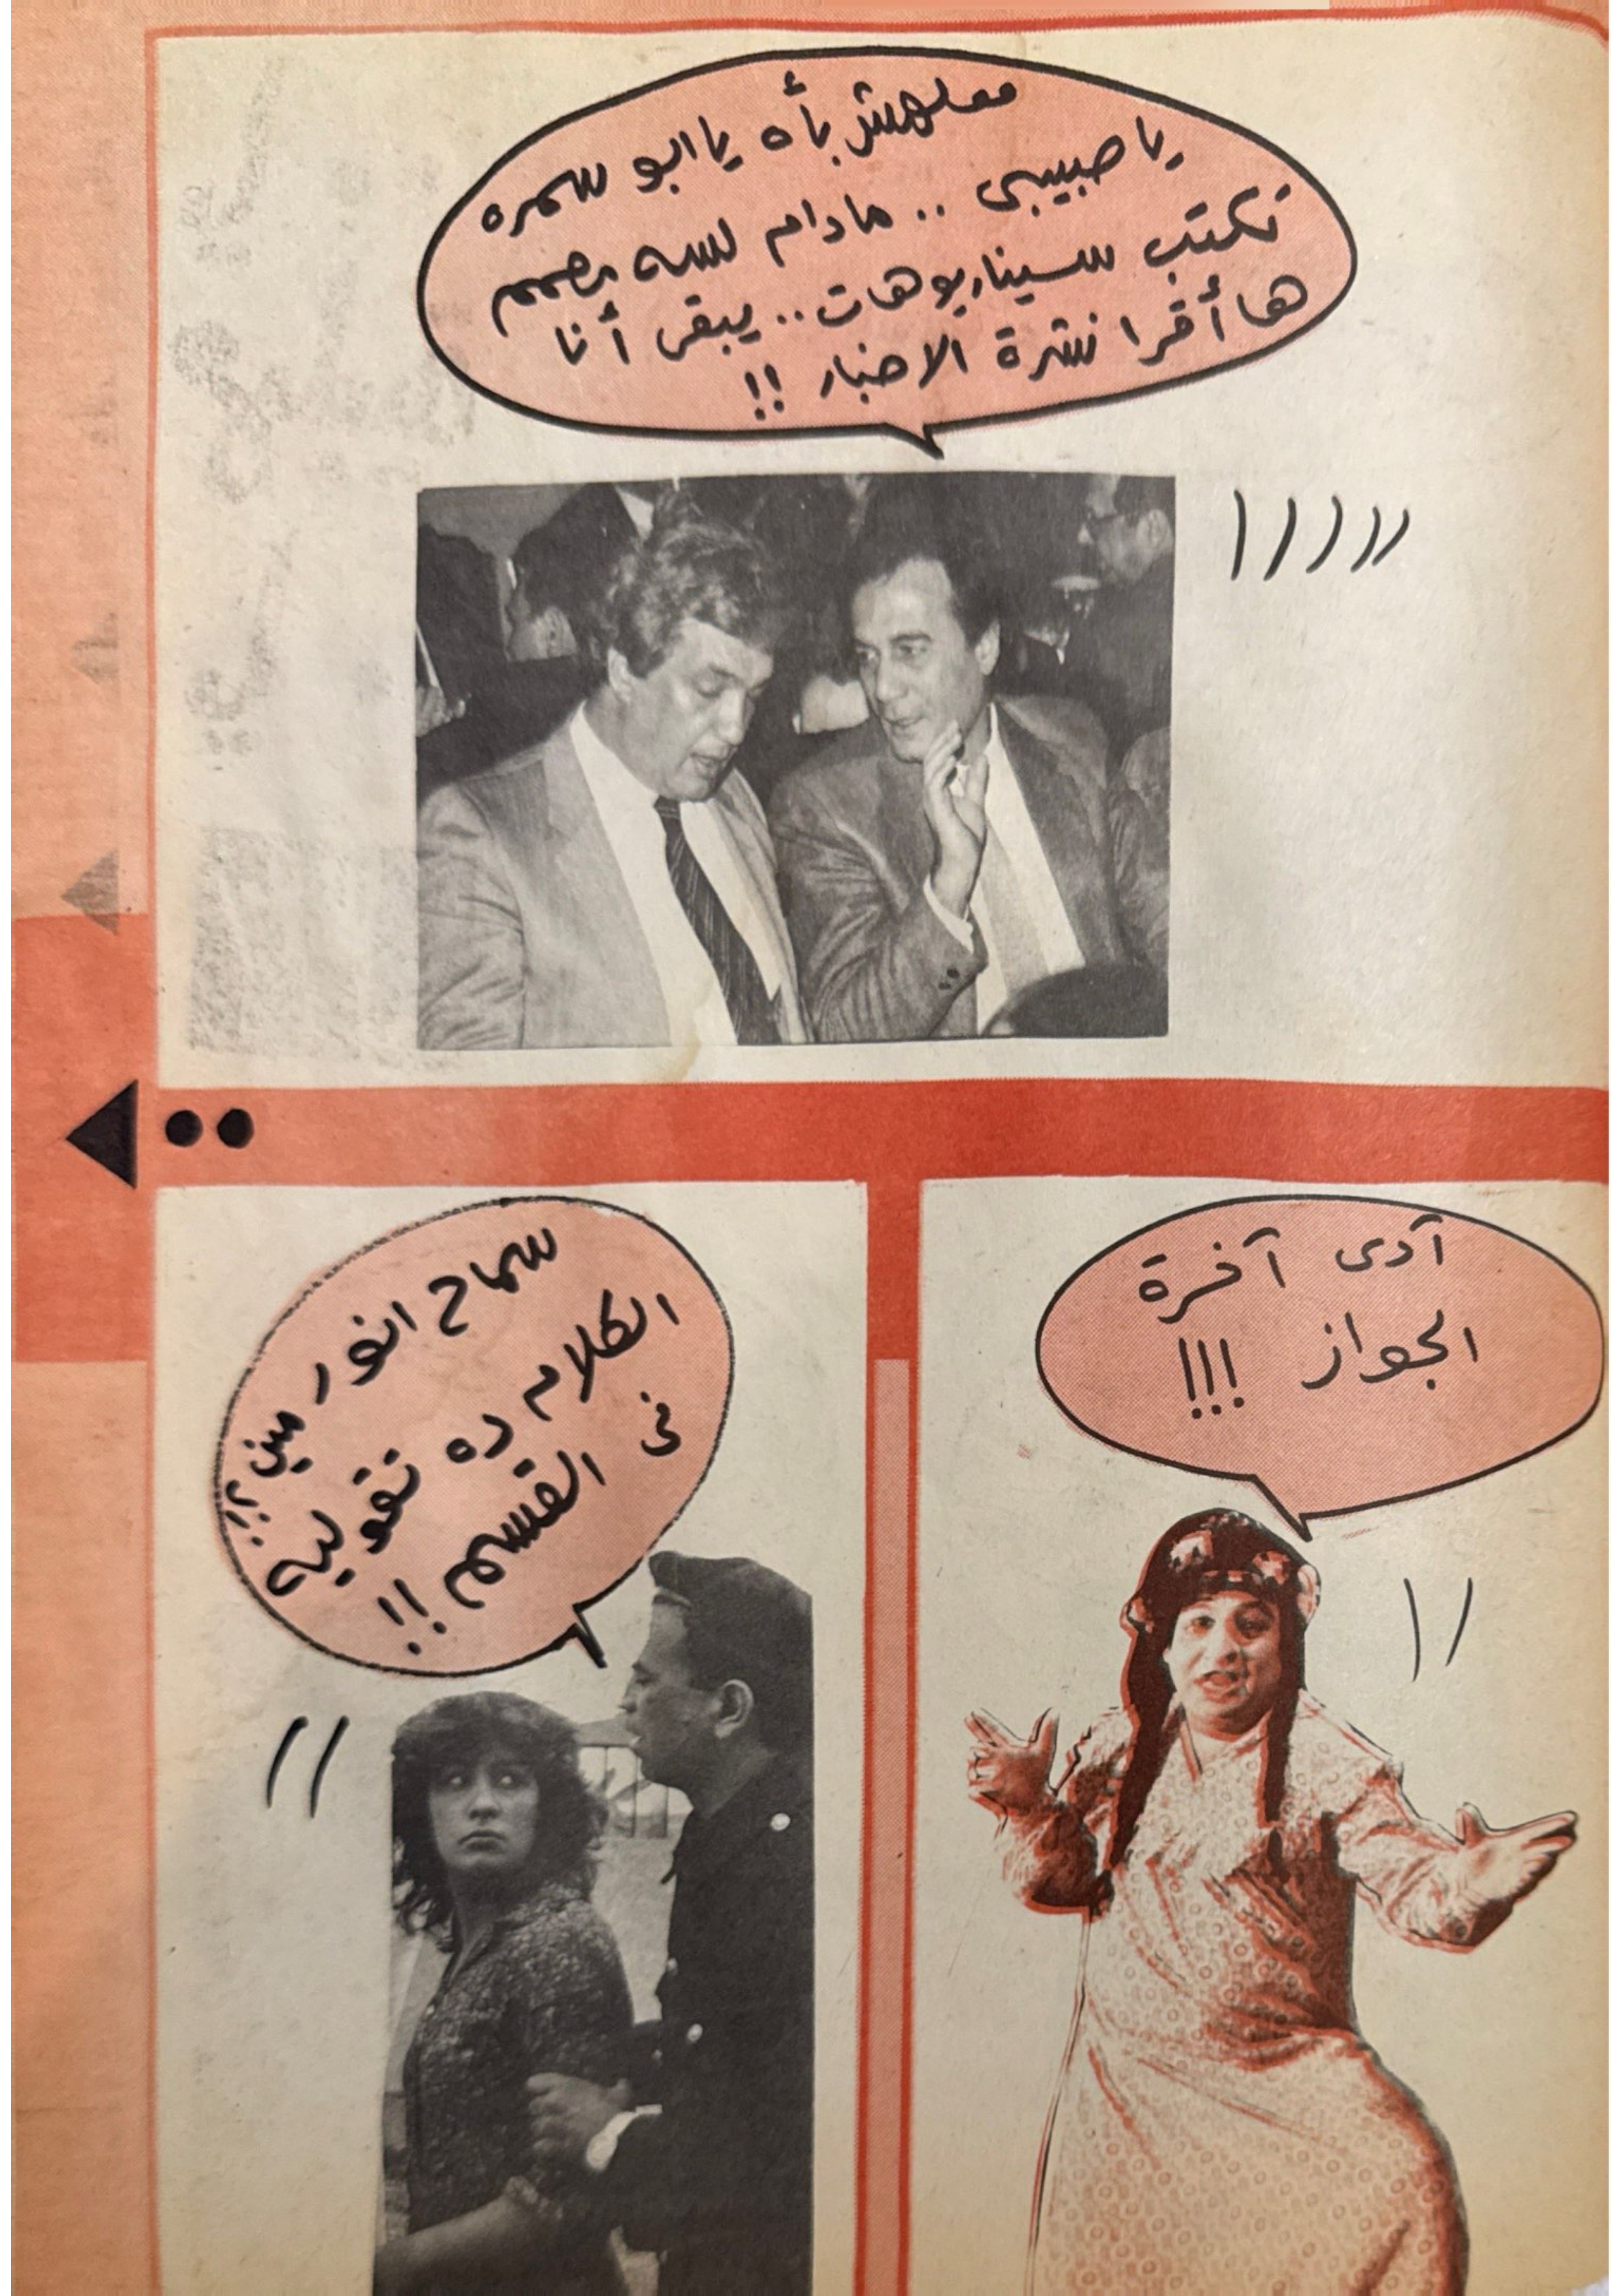 معلهش بأه يا ابو سمره
يا حبيبى .. مادام لسه مصمم
تكتب سيناريوهات .. يبقى أنا
ها أقرا نشرة الاخبار !!
آدى آخرة
الجواز !!!
سماح انور مين ؟!
الكلام ده تقوليه
فى القسم !!